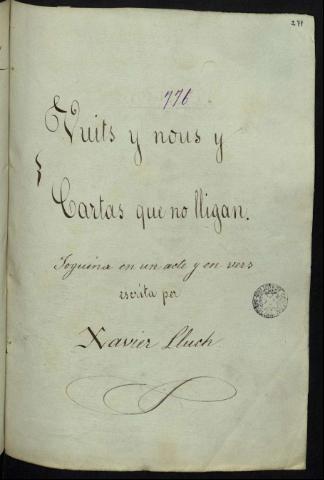 271
776
Vuits y nous y
Cartas que no lligan.
Joguina en un acte y en vers
escrita per
Xavier Lluch